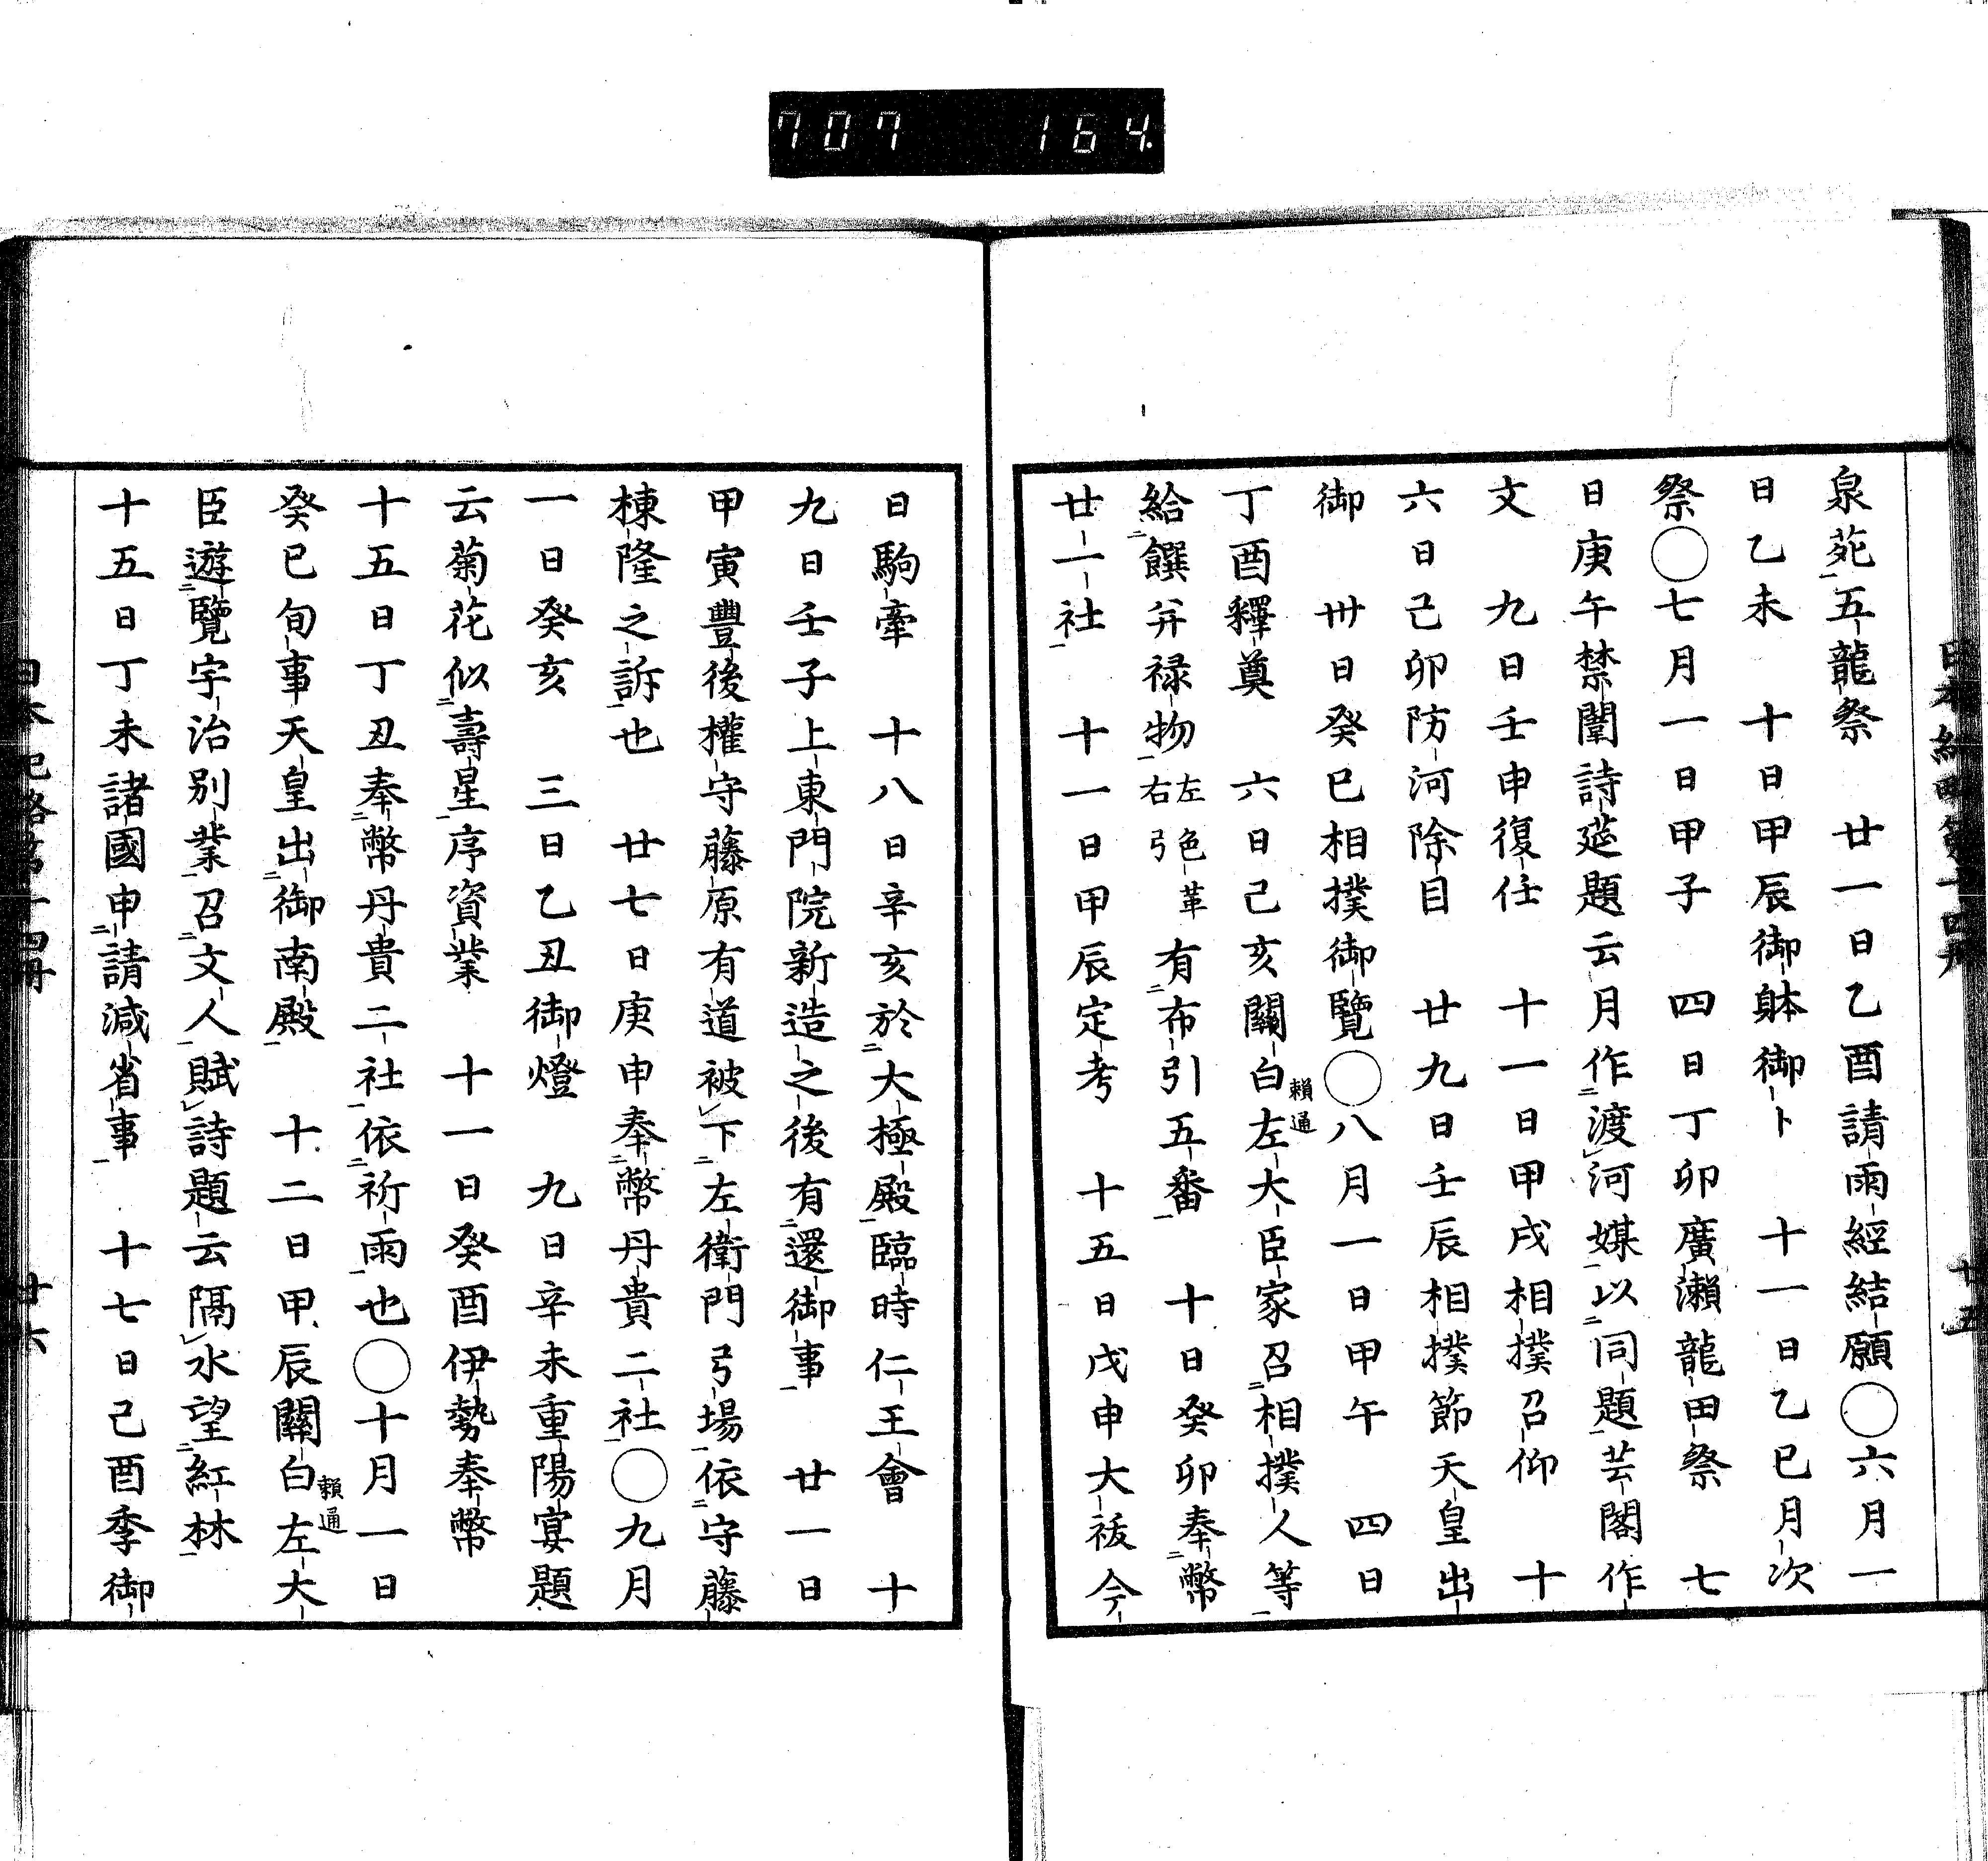 707 164
泉苑五龍祭　廿一日乙酉請雨經結願〇六月一
日乙未　十日甲辰御躰御卜　十一日乙巳月次
祭〇七月一日甲子　四日丁卯廣瀨龍田祭　七
日庚午禁闈詩莚題云月作渡河媒以同題芸閣作
文　九日壬申復任　十一日甲戌相撲召仰　十
六日己卯防河除目　廿九日壬辰相撲節天皇出
御　卅日癸巳相撲御覽〇八月一日甲午　四日
丁酉釋奠　六日己亥關白賴通左大臣家召相撲人等
給饌并禄物左色革右弓有布引五番　十日癸卯奉幣
廿一社　十一日甲辰定考　十五日戊申大祓今
日本紀略第十四册　廿五
日駒牽　十八日辛亥於大極殿臨時仁王會　十
九日壬子上東門院新造之後有還御事　廿一日
甲寅豐後權守藤原有道被下左衛門弓場依守藤
棟隆之訴也　廿七日庚申奉幣丹貴二社〇九月
一日癸亥　三日乙丑御燈　九日辛未重陽宴題
云菊花似壽星序資業　十一日癸酉伊勢奉幣
十五日丁丑奉幣丹貴二社依祈雨也〇十月一日
癸巳旬事天皇出御南殿　十二日甲辰關白賴通左大
臣遊覽宇治別業召文人賦詩題云隔水望紅林
十五日丁未諸國申請減省事　十七日己酉季御
日本紀略第十四册　廿六